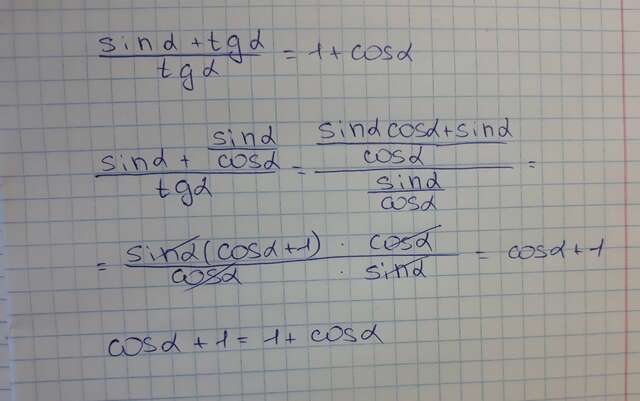 (sinα + tgα)/(tgα) = 1 + cosα
(sinα + (sinα)/(cosα))/(tgα) = ((sinαcosα + sinα)/(cosα))/((sinα)/(cosα)) =
= (sinα(cosα + 1) · cosα)/(cosα · sinα) = cosα + 1
cosα + 1 = 1 + cosα